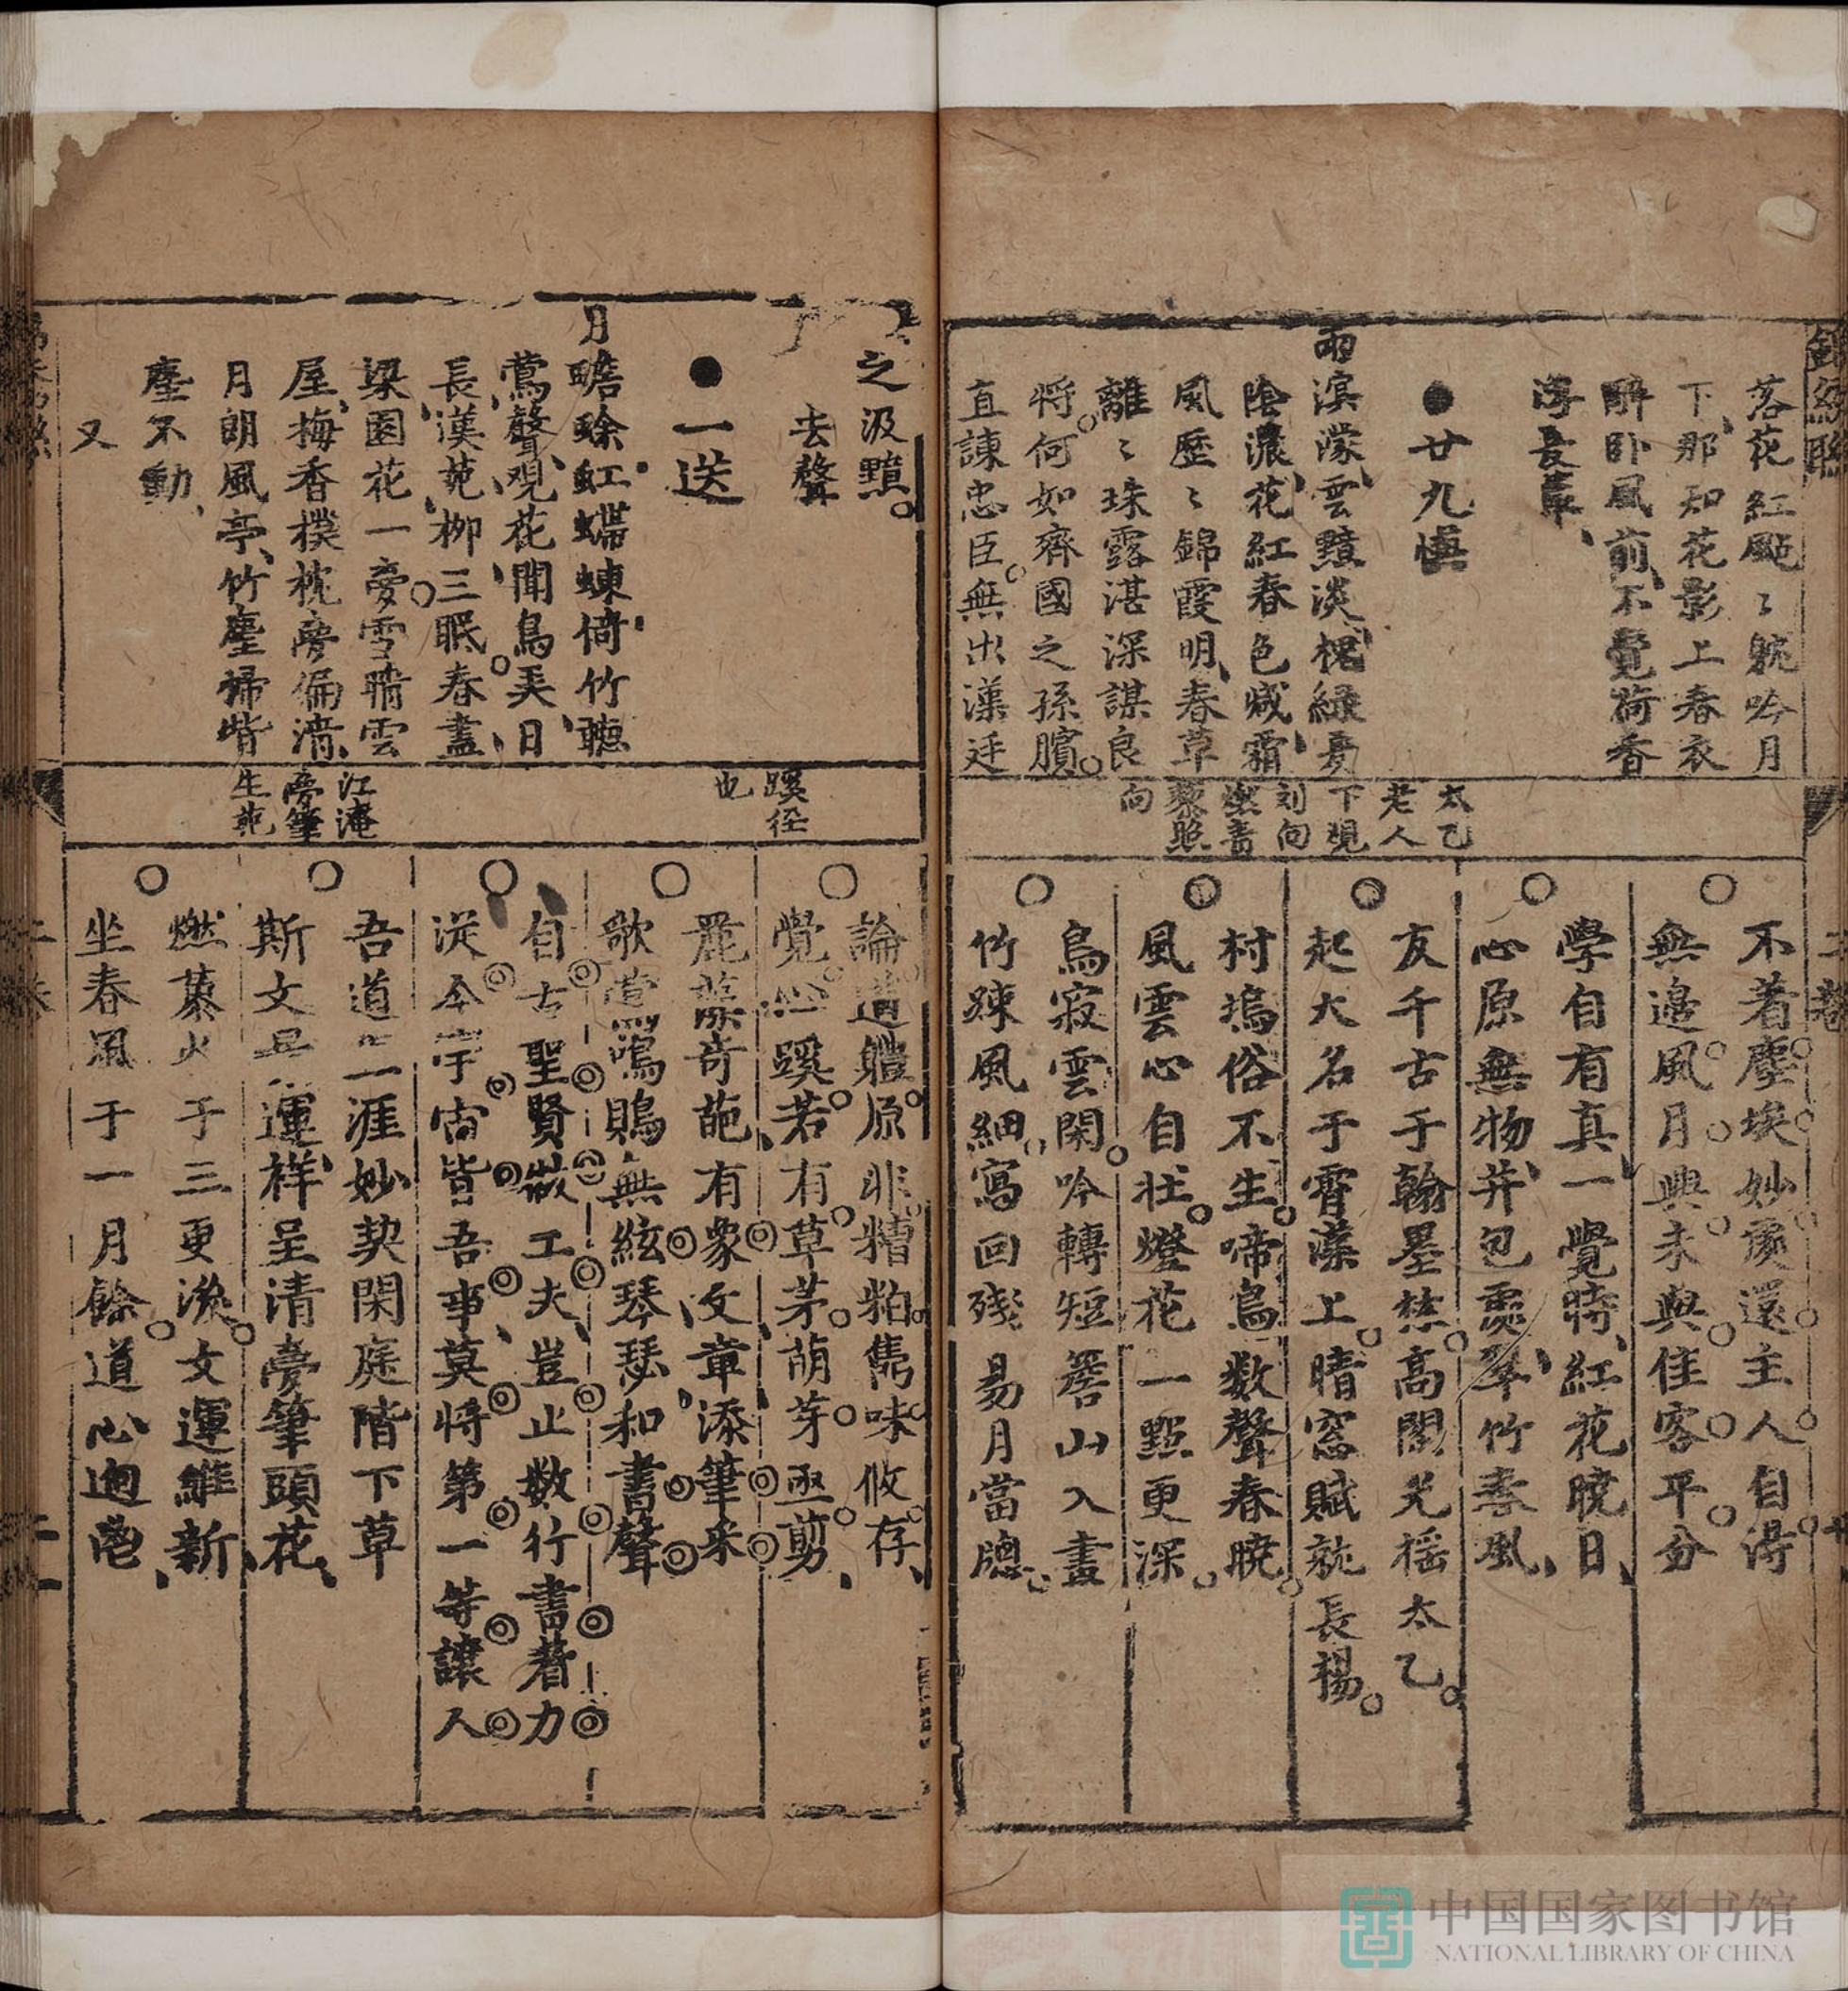 落花紅點〻躭吟月
下那知花影上春衣
醉卧風前不覺荷香
●廿九
雨溟濛雲黯淡槐緑夏
陰濃花紅春色咸霜
風歷〻錦霞明春草
離〻珠露湛深謀良
將何如齊國之孫臏
直諫忠臣無出漢廷
太乙
老人
下觀
刘向
燃書
藜照
向
不着塵埃妙處還主人自得
無邊風月興未與佳客平分
學自有真一覺時紅花曉日
心原無物并包處翠竹春風
友千古于翰墨林高閣光摇太乙
起大名于霄藻上晴窓賦就長楊
村塢俗不生啼鳥数聲春曉
風雲心自壮燈花一點更深
鳥寂雲閑吟轉短簷山入畫
竹踈風細寫回殘易月當牕
之汲黯
去聲
●一送
月瞻蜍虹蝃蝀倚竹聽
鶯聲观花聞鳥美日
長漢苑柳三眠春盡
梁園花一夣雪晴雲
屋梅香撲枕夣偏清
月朗風亭竹塵掃堦
塵不動
又
蹊径
也
江淹
夣筆
生花
論道軆原非糟粕雋味攸存
覺心蹊若有草茅萌芽亟剪
羅落奇葩有象文章添筆采
歌鶯鳴鵙無絃琴瑟和書聲
自古聖賢做工夫豈止数行書着力
從今宇宙皆吾事莫将第一等讓人
吾道一涯妙契閑庭階下草
斯文運祥呈清夣筆頭花
燃藜火于三更後文運維新
坐春風于一月餘道心迥
二卷